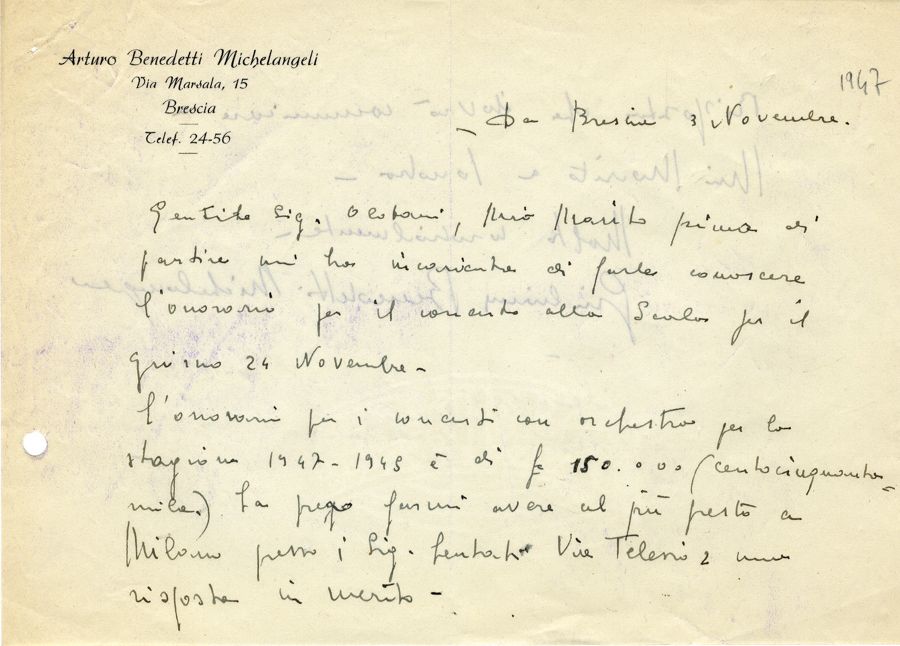 Arturo Benedetti Michelangeli
Via Marsala, 15
Brescia
Telef. 24-56
1947
Da Brescia 3 Novembre.
Gentile Sig. Mio Marito prima di
partire mi ha incaricata di farle conoscere
l'onorario per il concerto alla Scala per il
giorno 24 Novembre -
L'onorario per i concerti con orchestra per la
stagione 1947-1948 è di £ 150.000 (centocinquanta=
mila.) La prego farmi avere al più presto a
Milano presso i Sig. Via Telesio 2 una
risposta in merito -